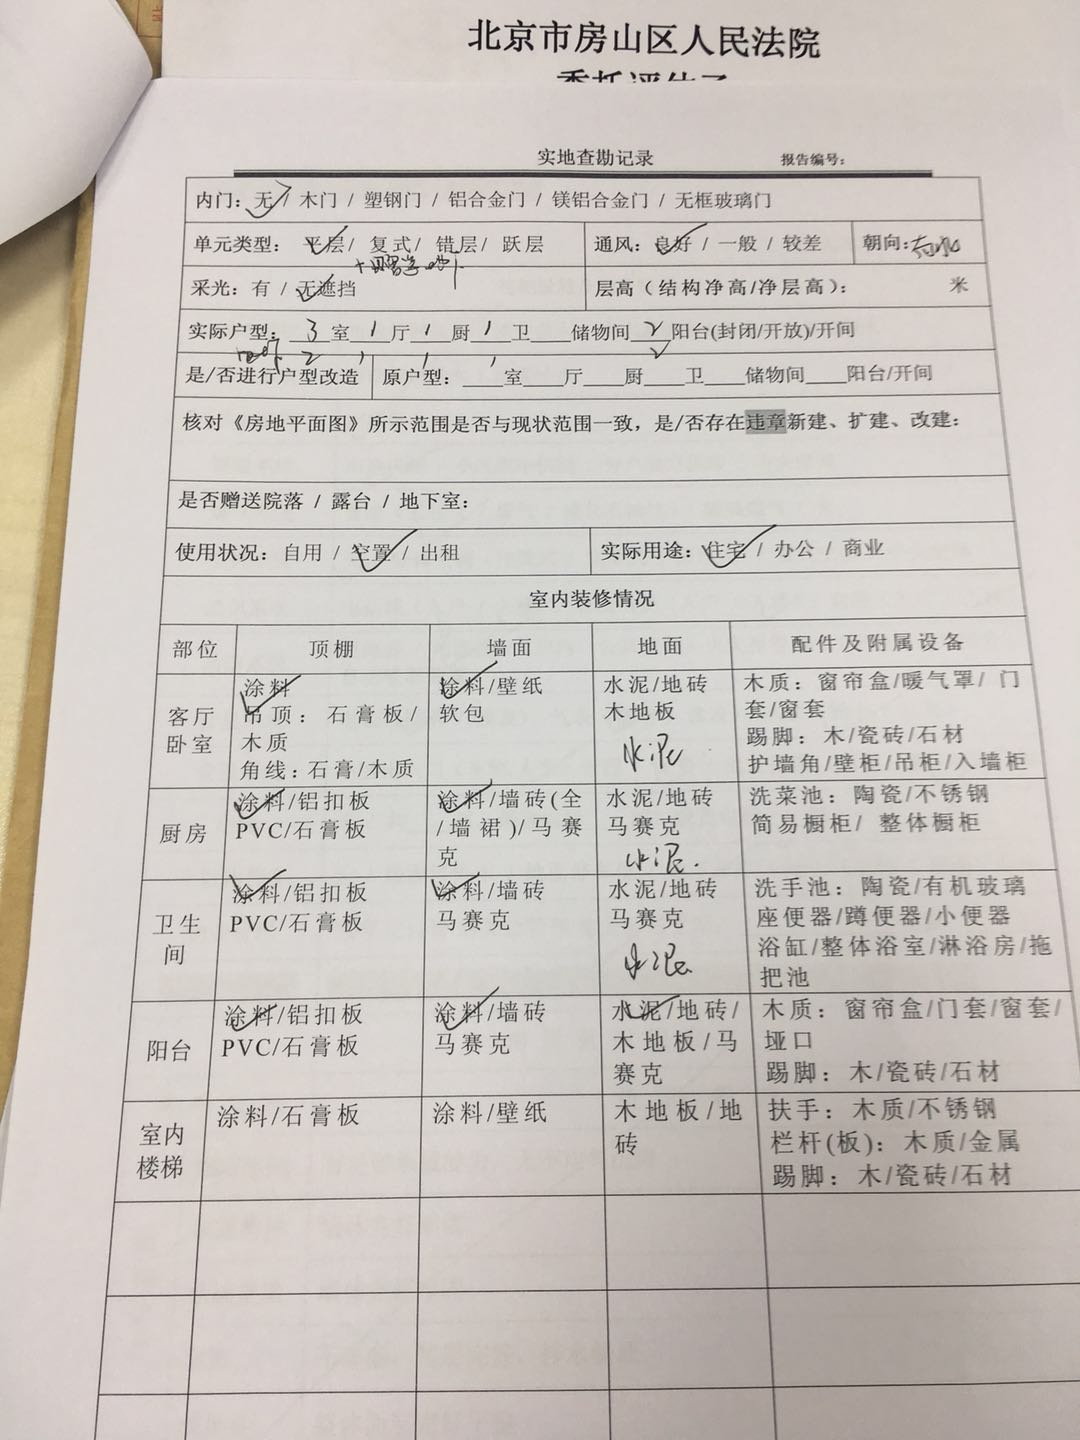 北京市房山区人民法院
实地查勘记录 报告编号：
内门：无 / 木门 / 塑钢门 / 铝合金门 / 镁铝合金门 / 无框玻璃门
单元类型： 平层/ 复式/ 错层/ 跃层 通风：良好 / 一般 / 较差 朝向：南北
采光：有 / 无遮挡 层高（结构净高/净层高）： 米
实际户型： 3 室 1 厅 1 厨 1 卫 储物间 2 阳台(封闭/开放)/开间
2 1 1 1
是/否进行户型改造 原户型： 室 厅 厨 卫 储物间 阳台/开间
核对《房地平面图》所示范围是否与现状范围一致，是/否存在违章新建、扩建、改建：
是否赠送院落 / 露台 / 地下室：
使用状况：自用 / 空置 / 出租 实际用途：住宅 / 办公 / 商业
室内装修情况
部位 顶棚 墙面 地面 配件及附属设备
客厅
卧室
涂料
吊顶：石膏板/
木质
角线：石膏/木质
涂料/壁纸
软包
水泥/地砖
木地板
水泥
木质：窗帘盒/暖气罩/ 门
套/窗套
踢脚：木/瓷砖/石材
护墙角/壁柜/吊柜/入墙柜
厨房
涂料/铝扣板
PVC/石膏板
涂料/墙砖(全
/墙裙)/马赛
克
水泥/地砖
马赛克
水泥.
洗菜池：陶瓷/不锈钢
简易橱柜/ 整体橱柜
卫生
间
涂料/铝扣板
PVC/石膏板
涂料/墙砖
马赛克
水泥/地砖
马赛克
水泥
洗手池：陶瓷/有机玻璃
座便器/蹲便器/小便器
浴缸/整体浴室/淋浴房/拖
把池
阳台
涂料/铝扣板
PVC/石膏板
涂料/墙砖
马赛克
水泥/地砖/
木地板/马
赛克
木质：窗帘盒/门套/窗套/
垭口
踢脚：木/瓷砖/石材
室内
楼梯
涂料/石膏板
涂料/壁纸
木地板/地
砖
扶手：木质/不锈钢
栏杆(板)：木质/金属
踢脚：木/瓷砖/石材